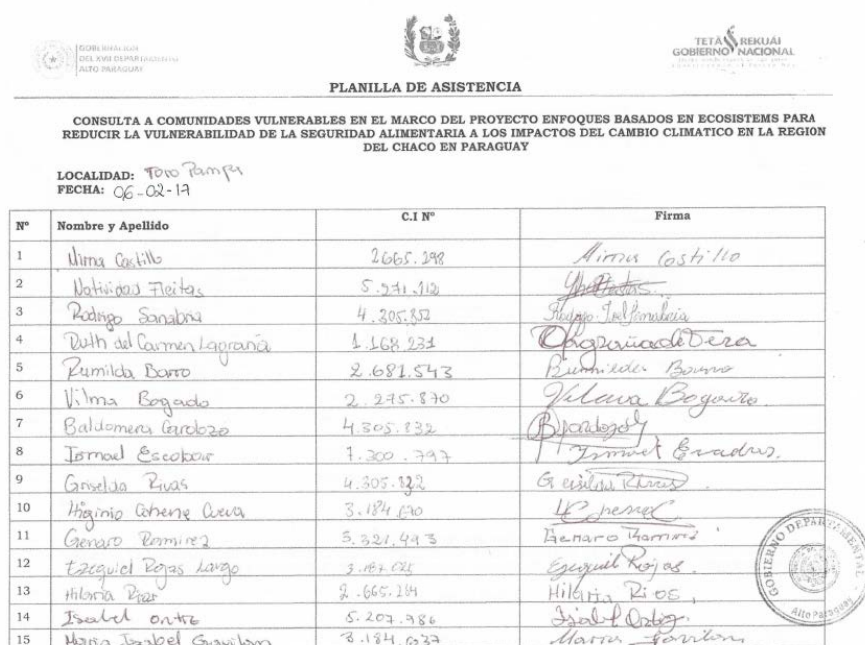 GOBERNACION
DEL XVII DEPARTAMENTO
ALTO PARAGUAY
TETÃ REKUÁI
GOBIERNO NACIONAL
PLANILLA DE ASISTENCIA
CONSULTA A COMUNIDADES VULNERABLES EN EL MARCO DEL PROYECTO ENFOQUES BASADOS EN ECOSISTEMS PARA
REDUCIR LA VULNERABILIDAD DE LA SEGURIDAD ALIMENTARIA A LOS IMPACTOS DEL CAMBIO CLIMATICO EN LA REGION
DEL CHACO EN PARAGUAY
LOCALIDAD: Toro Pampa
FECHA: 06-02-17
Nº Nombre y Apellido C.I Nº Firma
1 Mirna Castillo 2665.298 Mirna Castillo
2 Natividad Fleitas 5.271.112
3 Rodrigo Sanabria 4.305.852
4 Ruth del Carmen Lagraña 1.168.231
5 Rumilda Barro 2.681.543
6 Vilma Bogado 2.275.870 Bogado
7 Baldomera Cardozo 4.305.832
8 Ismael Escobar 7.300.797
9 Griselda Rivas 4.305.822 Griselda Rivas
10 Higinio Coherne Cueva 3.184.670
11 Genaro Ramirez 5.321.493 Genaro Ramirez
12 Ezequiel Rojas Largo Ezequiel Rojas
13 Hilaria Rios 2.665.284 Hilaria Rios
14 Isabel Ortiz 5.207.786 Isabel Ortiz
15 Maria Isabel Gavilan 3.184.637 Maria Gavilan
GOBIERNO DEPARTAMENTAL
Alto Paraguay